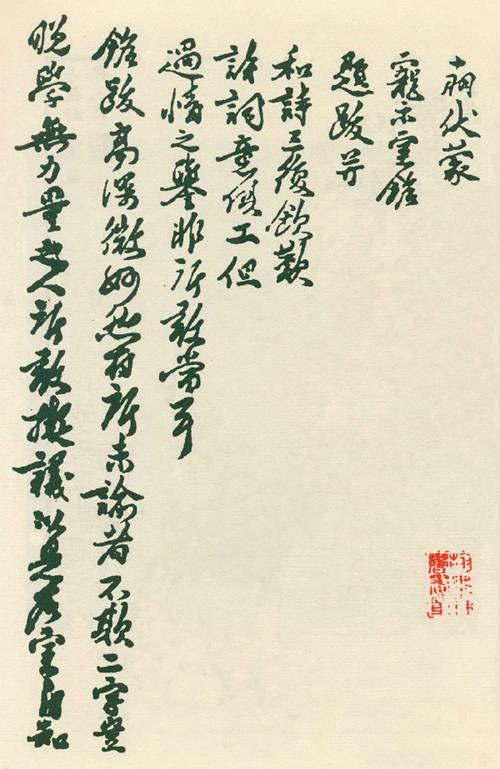 十朋伏蒙
寵示室銘
題跋并
和詩三復欽歎
詩詞意俱工但
過情之譽非所敢當耳
銘跋高深微妙然有所未諭者不欺二字豈
晚學無力量之人所敢擬議以是室自知